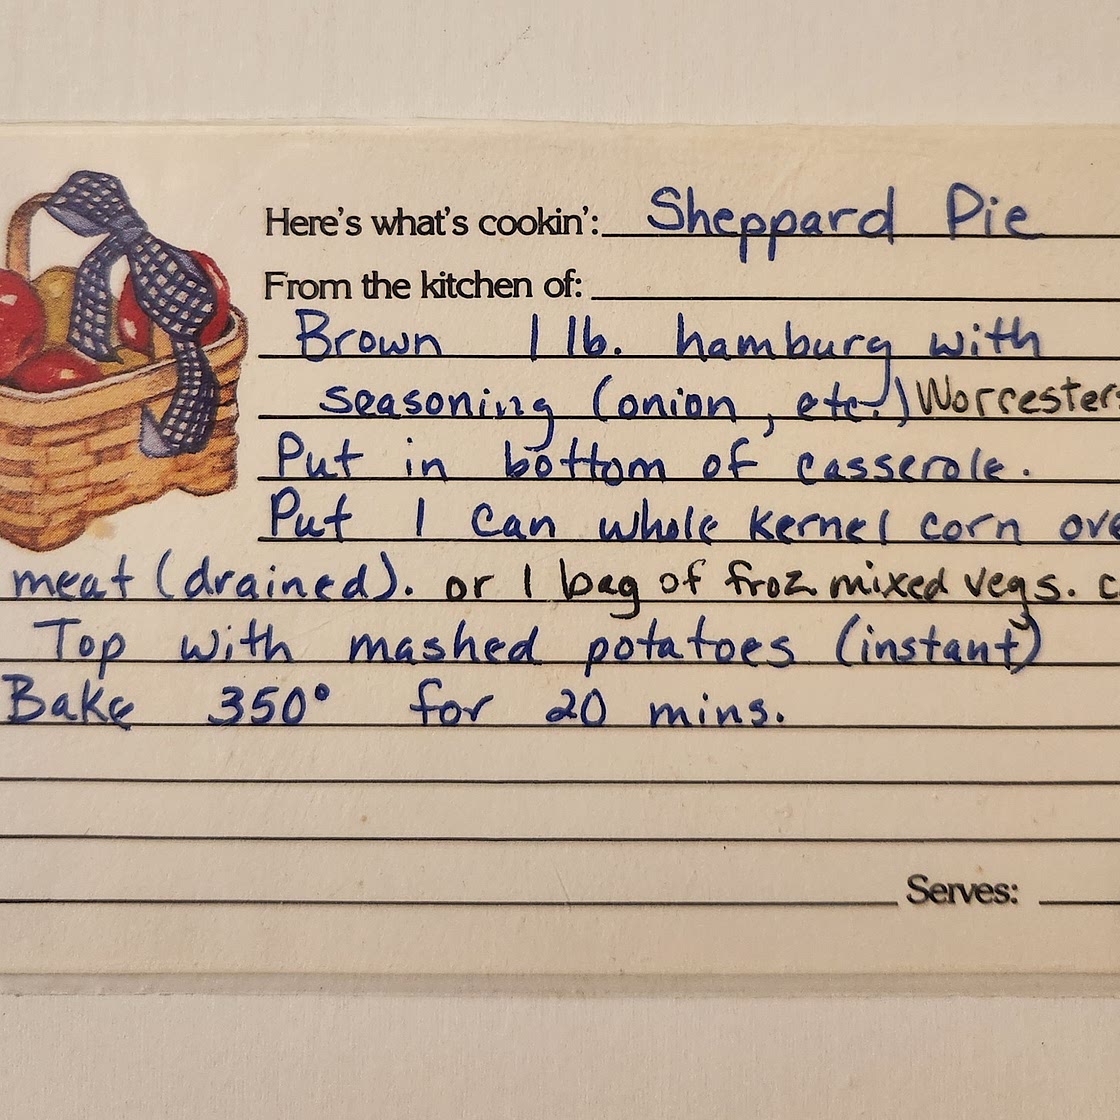 Here's what's cookin': Sheppard Pie
From the kitchen of:
Brown 1 lb. hamburg with
seasoning (onion, etc.) Worcester
Put in bottom of casserole.
Put 1 can whole kernel corn ov
meat (drained). or 1 bag of froz mixed vegs. c
Top with mashed potatoes (instant)
Bake 350° for 20 mins.
Serves: